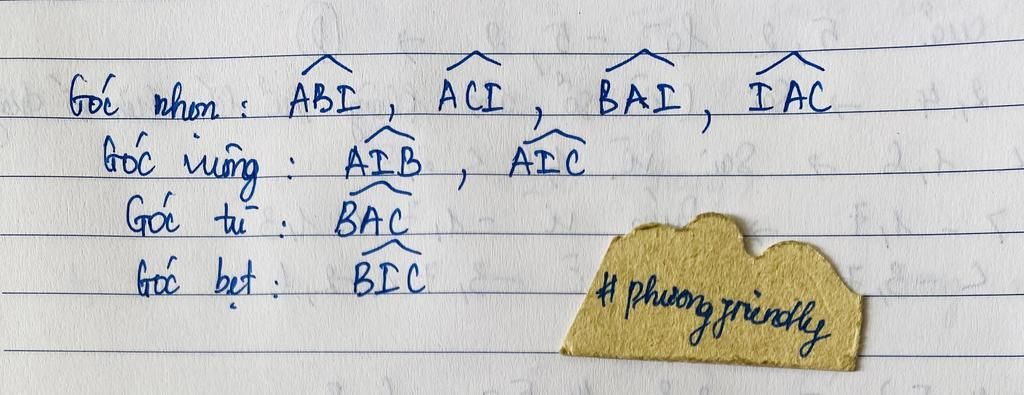 Góc nhọn : ABI , ACI , BAI , IAC
Góc vuông : AIB , AIC
Góc tù : BAC
Góc bẹt : BIC
# phuongfriendly